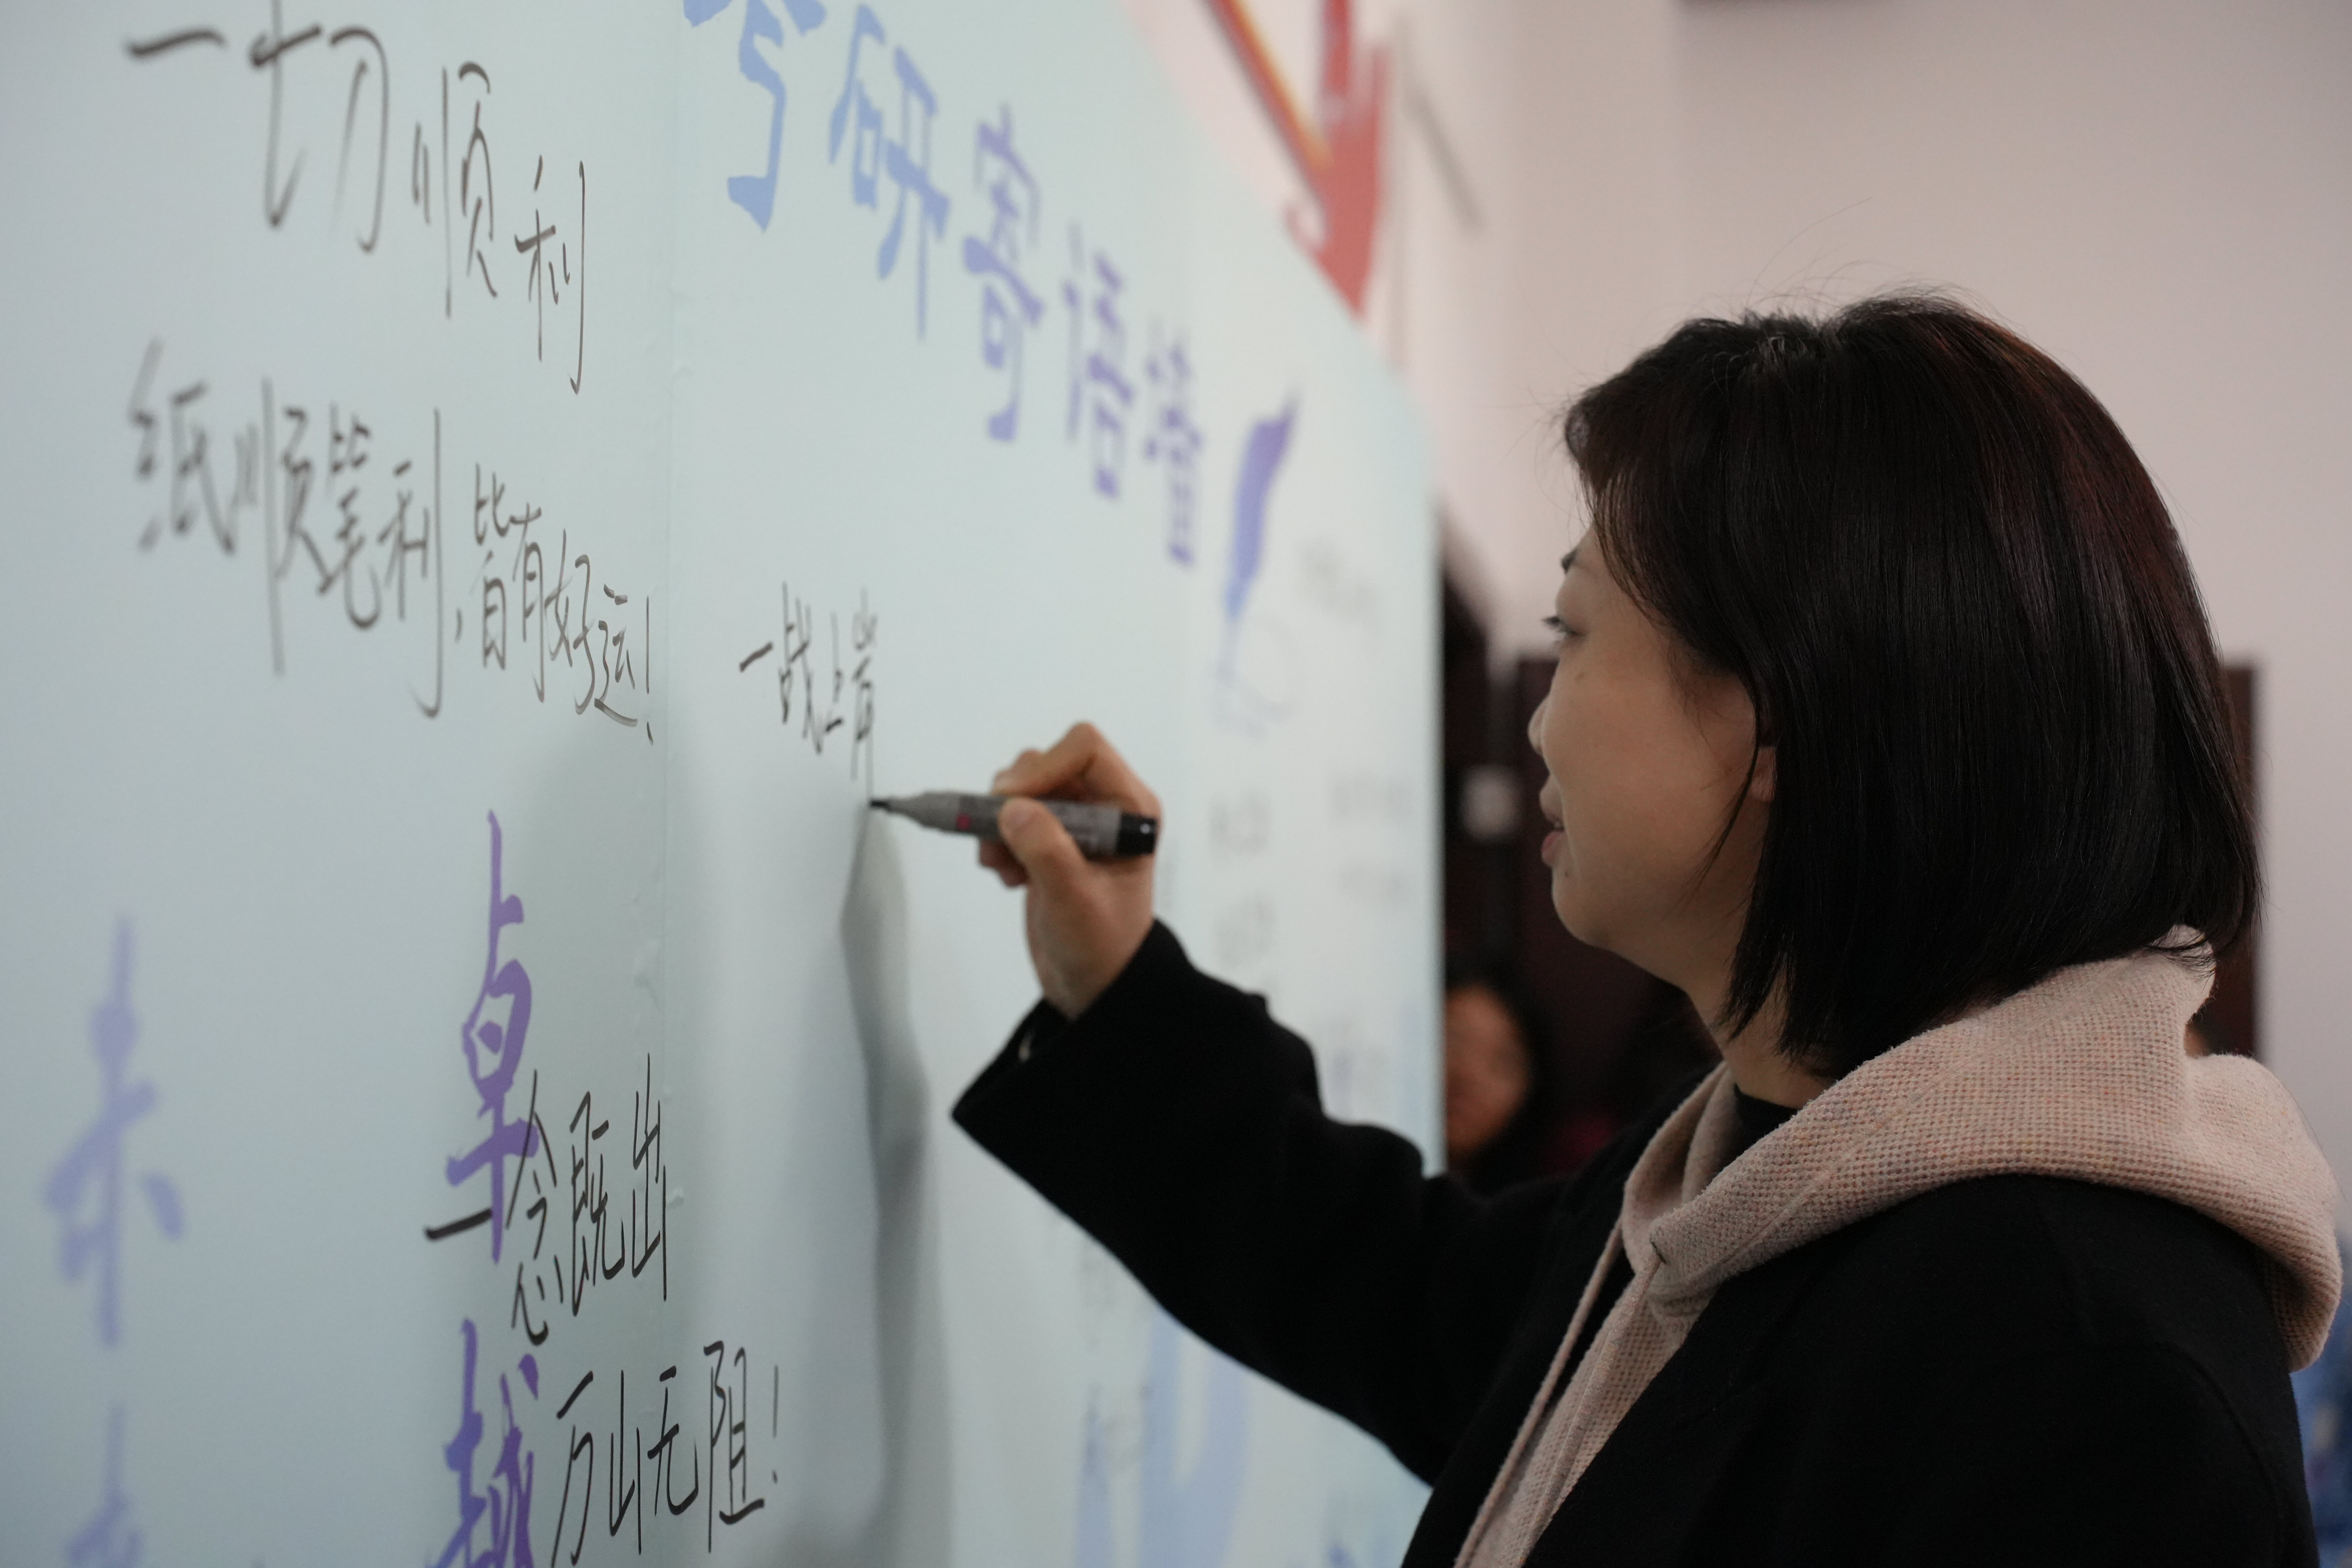 一切顺利
考研寄语墙
纸顺笔利,皆有好运!
一战上岸
卓越
一念既出
万山无阻!
未